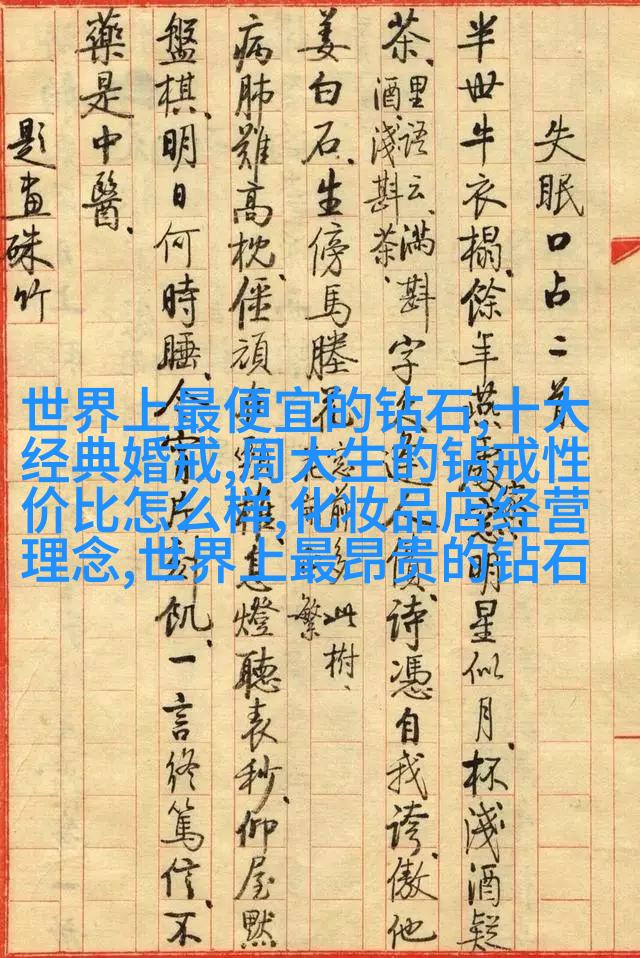 失眠口占二首
半世牛衣榻、餘年燕 明星似月、杯淺酒疑
茶、里語云、滿斟酒、淺斟茶、字 逢人 、詩憑自我誇、傲他
姜白石、生傍馬塍花 此樹、繁
病肺難高枕、僵頑 息燈聽表秒、仰屋默
盤棋、明日何時睡、今宵片刻飢、一言終篤信、不
藥是中醫、
題畫硃竹
世界上最便宜的钻石,十大
经典婚戒,周大生的钻戒性
价比怎么样,化妆品店经营
理念,世界上最昂贵的钻石